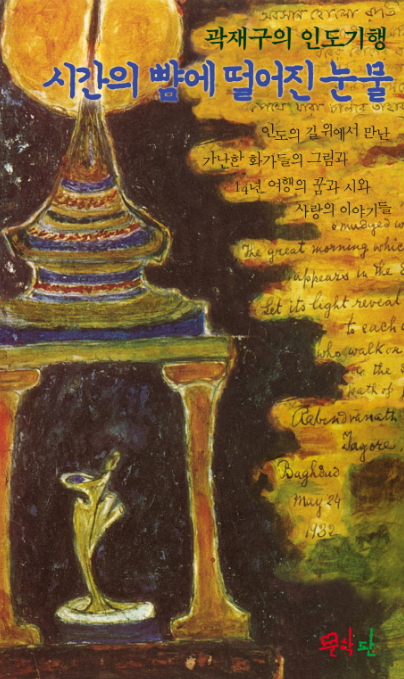 অবসান হোলো রাতি
곽재구의 인도기행
시간의 뺨에 떨어진 눈물
인도의 길 위에서 만난
가난한 화가들의 그림과
14년 여행의 꿈과 시와
사랑의 이야기들
The great morning which
appears in the
Let its light reveal
to each
who walk on
the
path of
Rabindranath
Tagore
Baghdad
May 24
1932
문학판